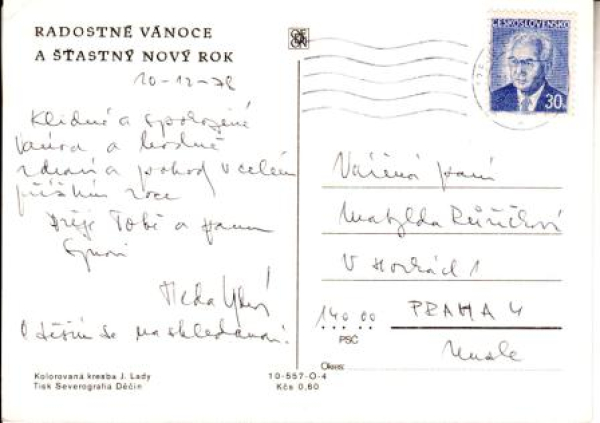 RADOSTNÉ VÁNOCE
A ŠŤASTNÝ NOVÝ ROK
10-12-78
Klidné a spokojené
vánoce a hodně
zdraví a pohody v celém
příštím roce
přeje Tobě a panu
synovi
Heda
a těším se na shledanou!
Kolorovaná kresba J. Lady
Tisk Severografia Děčín
10-557-O-4
Kčs 0,60
ČESKOSLOVENSKO
30
Vážená paní
Matylda Růžičková
V Horkách 1
140 00 PRAHA 4
PSČ
Nusle
Okres: